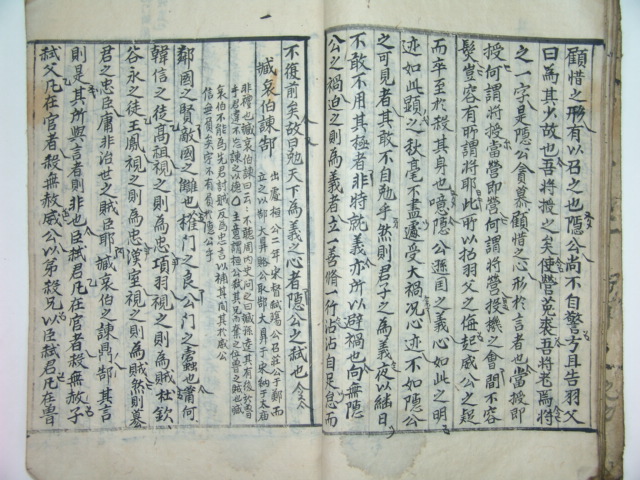 顧惜之形有以召之也隱公尚不自警方且告羽父
曰為其少故也吾將授之矣使營菟裘吾將老焉將
之一字是隱公貪慕顧惜之心形於言者也當授即
授何謂將授當營即營何謂將營投機之會間不容
髮豈容有所謂將耶此所以招羽父之侮起威公之疑
而卒至於殺其身也噫隱公遜國之義心如此之明
迹如此顯之秋毫不盡遽受大禍况心迹不如隱公
之可見者其敢不自勉乎然則君子之為義夜以繼日
不敢不用其極者非特就義亦所以避禍也向無隱
公之禍迫之則為義者立一善脩一行沾沾自足怠而
不復前矣故曰勉天下為義之心者隱公之弑也
臧哀伯諫郜
出處桓公二年宋督弑殤公召莊公于鄭而
立之以郜大鼎賂公取郜大鼎于宋納于太廟
非禮也臧哀伯諫曰云云不聽周內史聞之曰臧孫達其有後於魯
乎君違不忘諫之以德主意謂桓公弑其兄而簒之位魯之賊也臧
哀伯不能為先君討賊反為忠言以補其闕其不威公
鄰國之賢敵國之讎也權門之良公門之蠹也謂何
韓信之徒高祖視之則為忠項羽視之則為賊杜欽
谷永之徒王鳳視之則為忠漢室視之則為賊然則暴
君之忠臣庸非治世之賊臣耶臧哀伯之諫鼎郜其言
則是其所與言者則非也臣弑君凡在官者殺無赦子
弑父凡在官者殺無赦威公以弟殺兄以臣弑君凡在魯